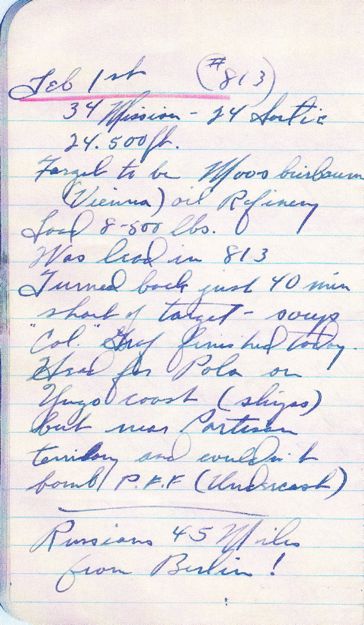 Feb 1st (#813)
34 Mission - 24 Sortie
24.500ft.
Target to be Moosbierbaum
(Vienna) oil Refinery
Load 8-500 lbs.
Was lead in 813
Turned back just 40 min
short of target - soup
"Col." finished today.
Head for Pola on
Yugo coast (ships)
but near Partisan
territory and couldn't
bomb P.F.F (Undercast)
Russians 45 Miles
from Berlin!